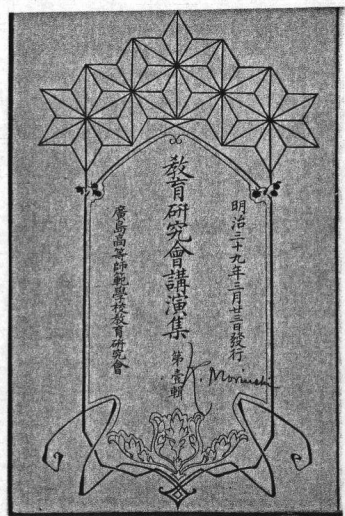 明治三十九年三月廿三日發行
教育研究會講演集 第壹輯
廣島高等師範學校教育研究會